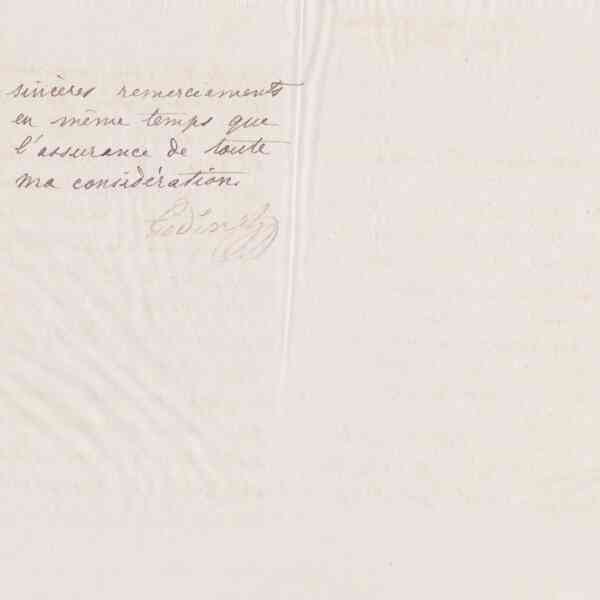 sincères remerciements
en même temps que
l'assurance de toute
ma considération.